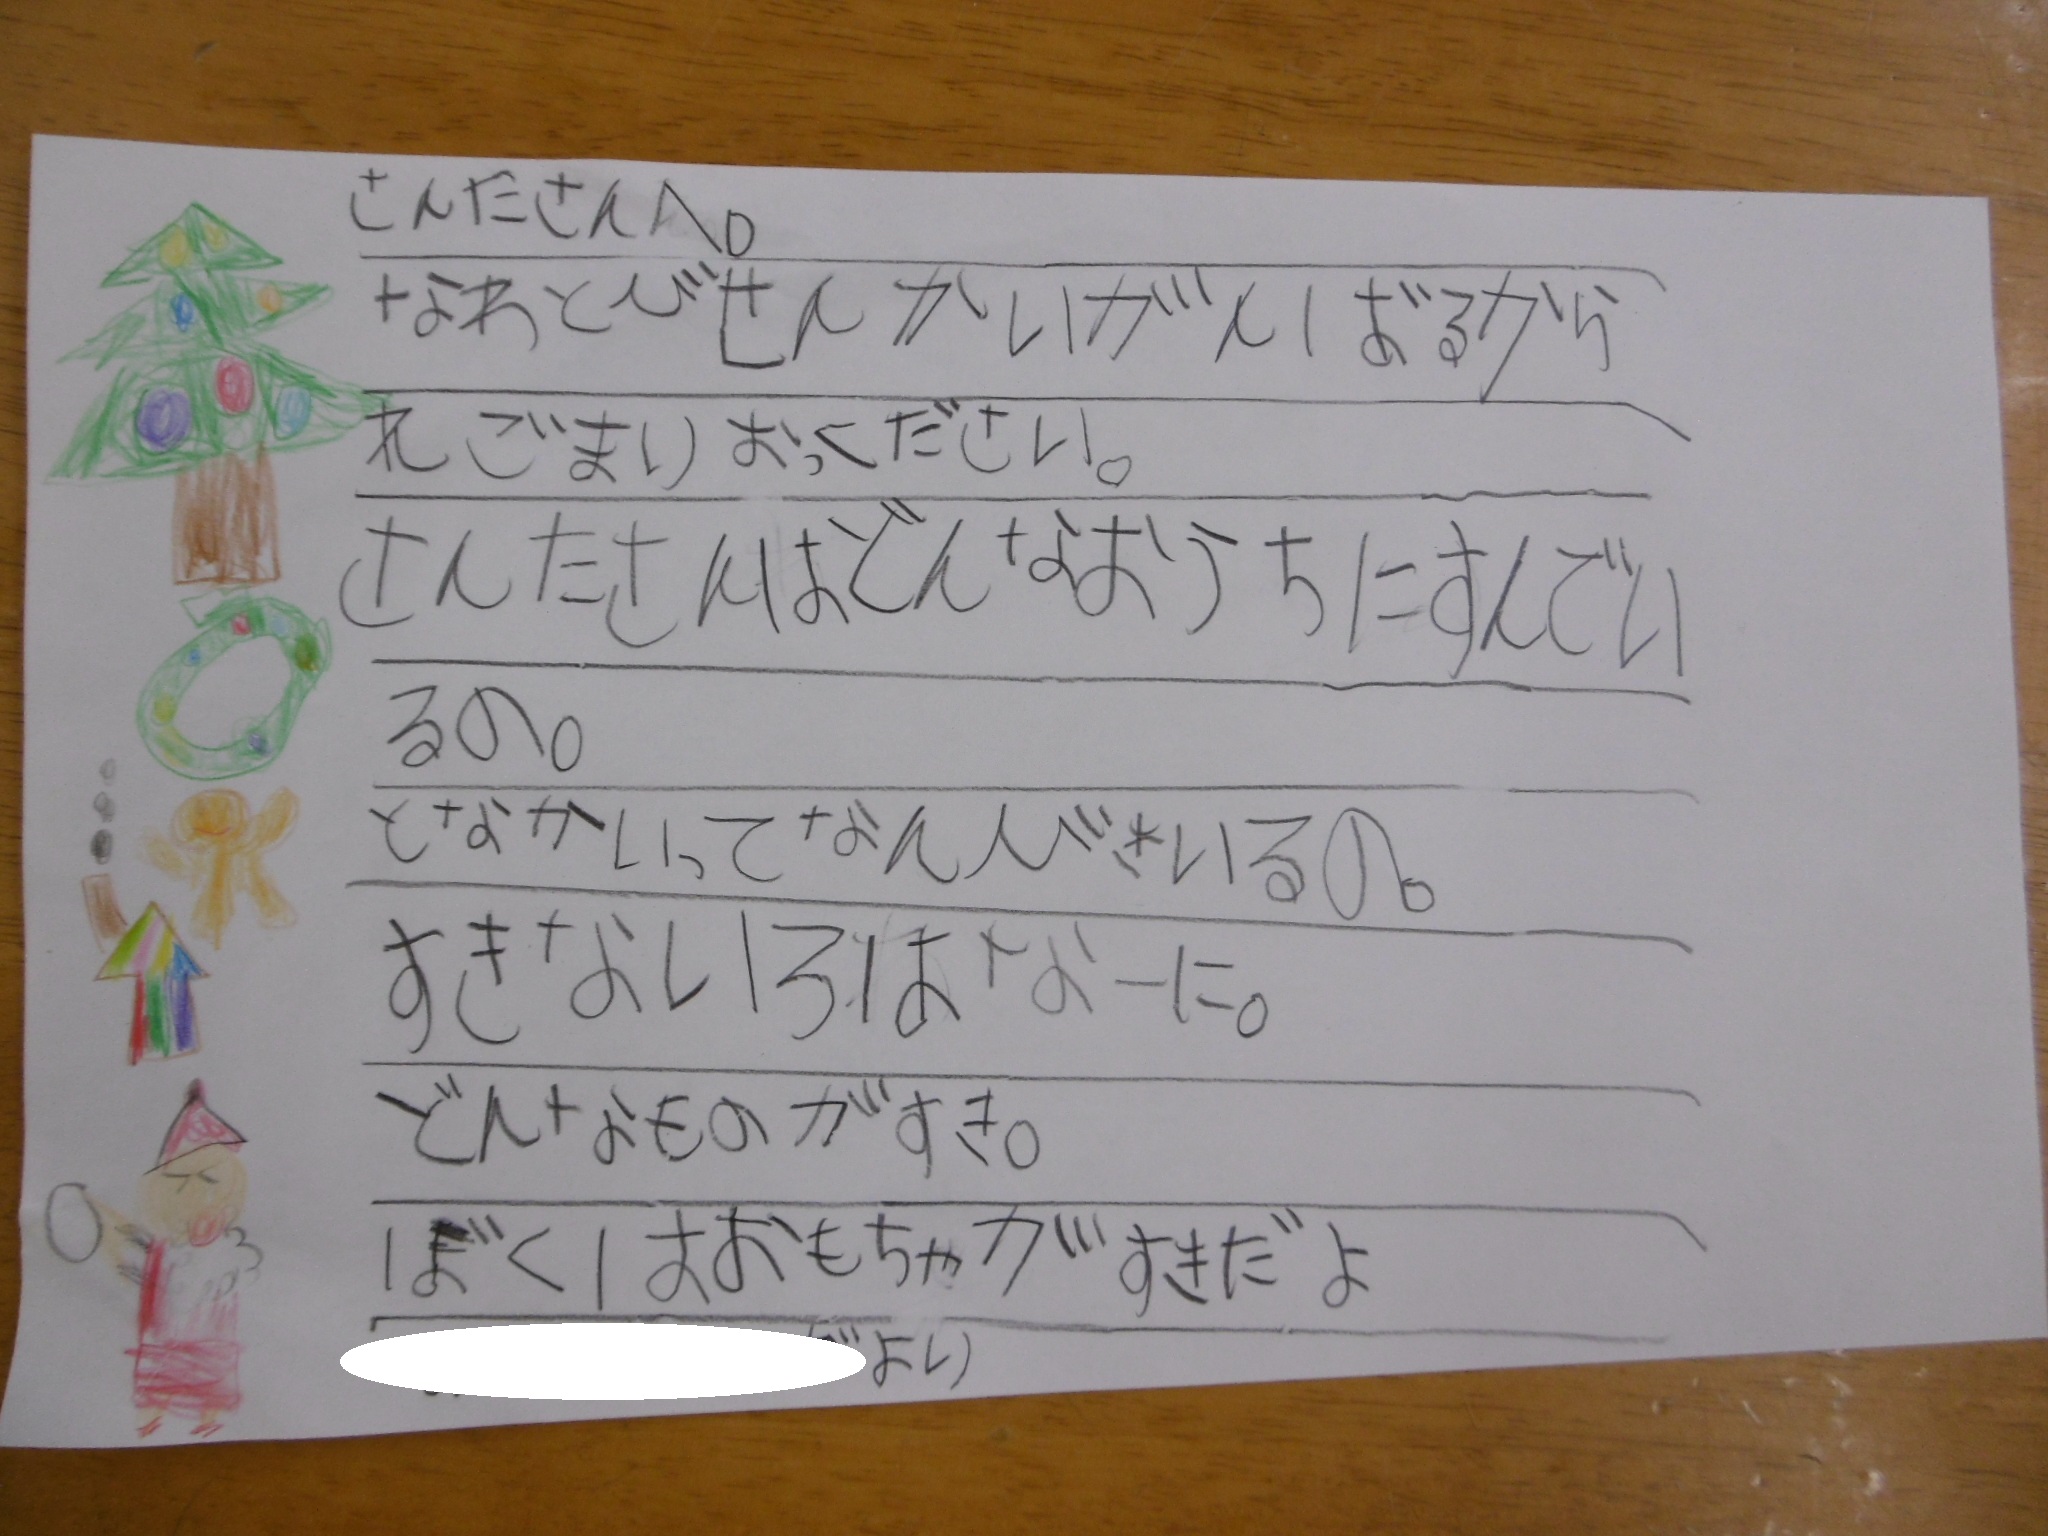 さんたさんへ。
なわとびせんかいがんばるから
れごまりおっください。
さんたさんはどんなおうちにすんでい
るの。
となかいってなんびきいるの。
すきないろはなーに。
どんなものがすき。
ぼくはおもちゃがすきだよ
より